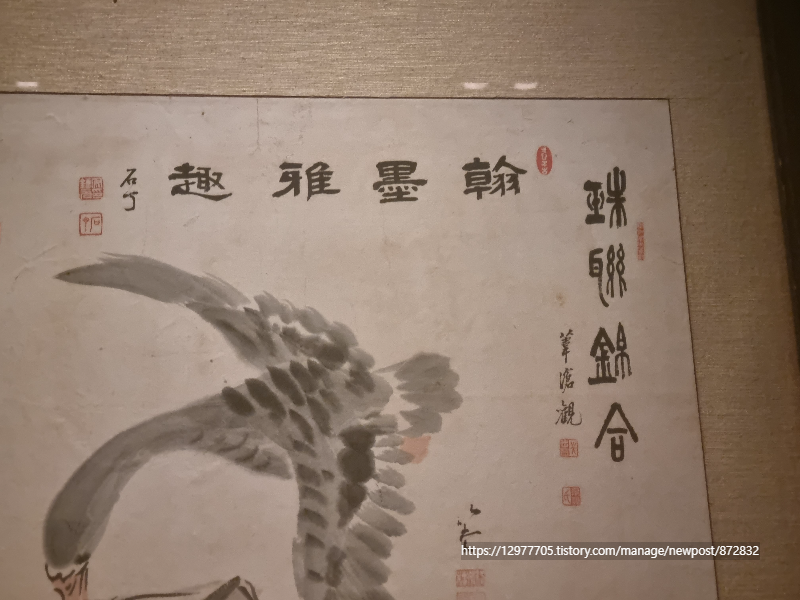 珠聯錦合
葦滄觀
翰墨雅趣
石丁
https://12977705.tistory.com/manage/newpost/872832